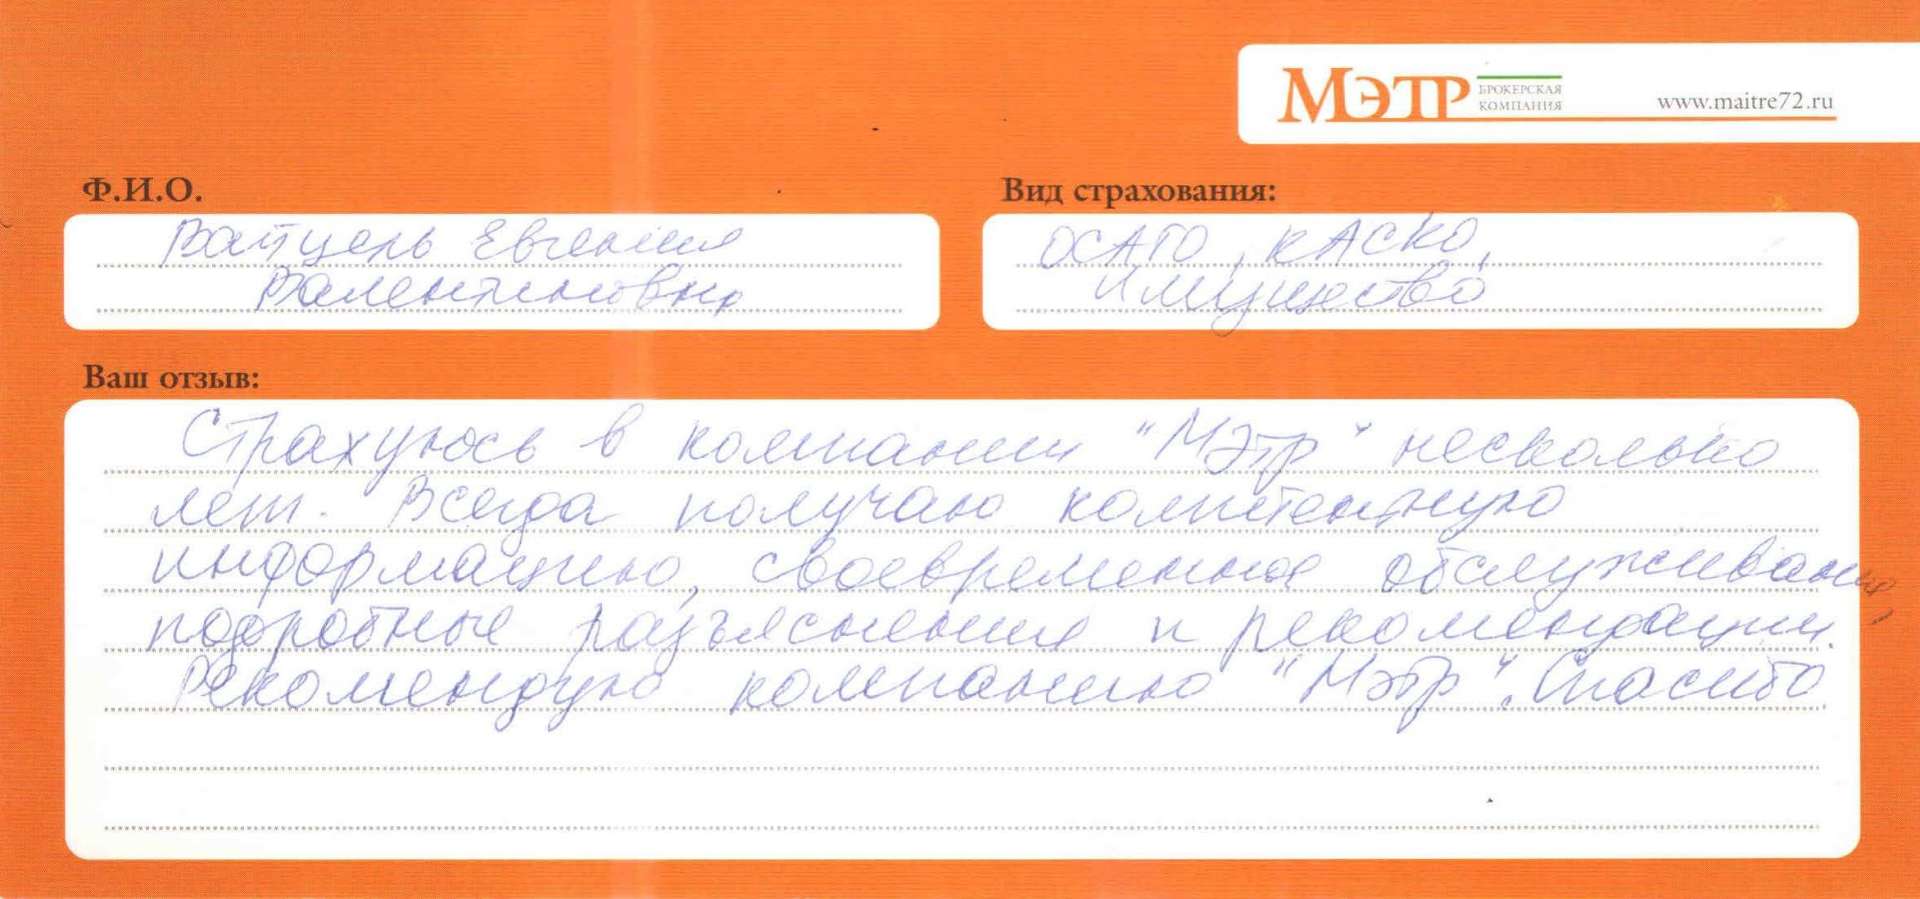 МЭТР БРОКЕРСКАЯ КОМПАНИЯ www.maitre72.ru
Ф.И.О.
Вид страхования:
Евгения
Валентиновна
ОСАГО, КАСКО,
имущество
Ваш отзыв:
Страхуюсь в компании "Мэтр" несколько
лет. Всегда получаю компетентную
информацию, своевременное обслуживание,
подробные разъяснения и рекомендации.
Рекомендую компанию "Мэтр". Спасибо